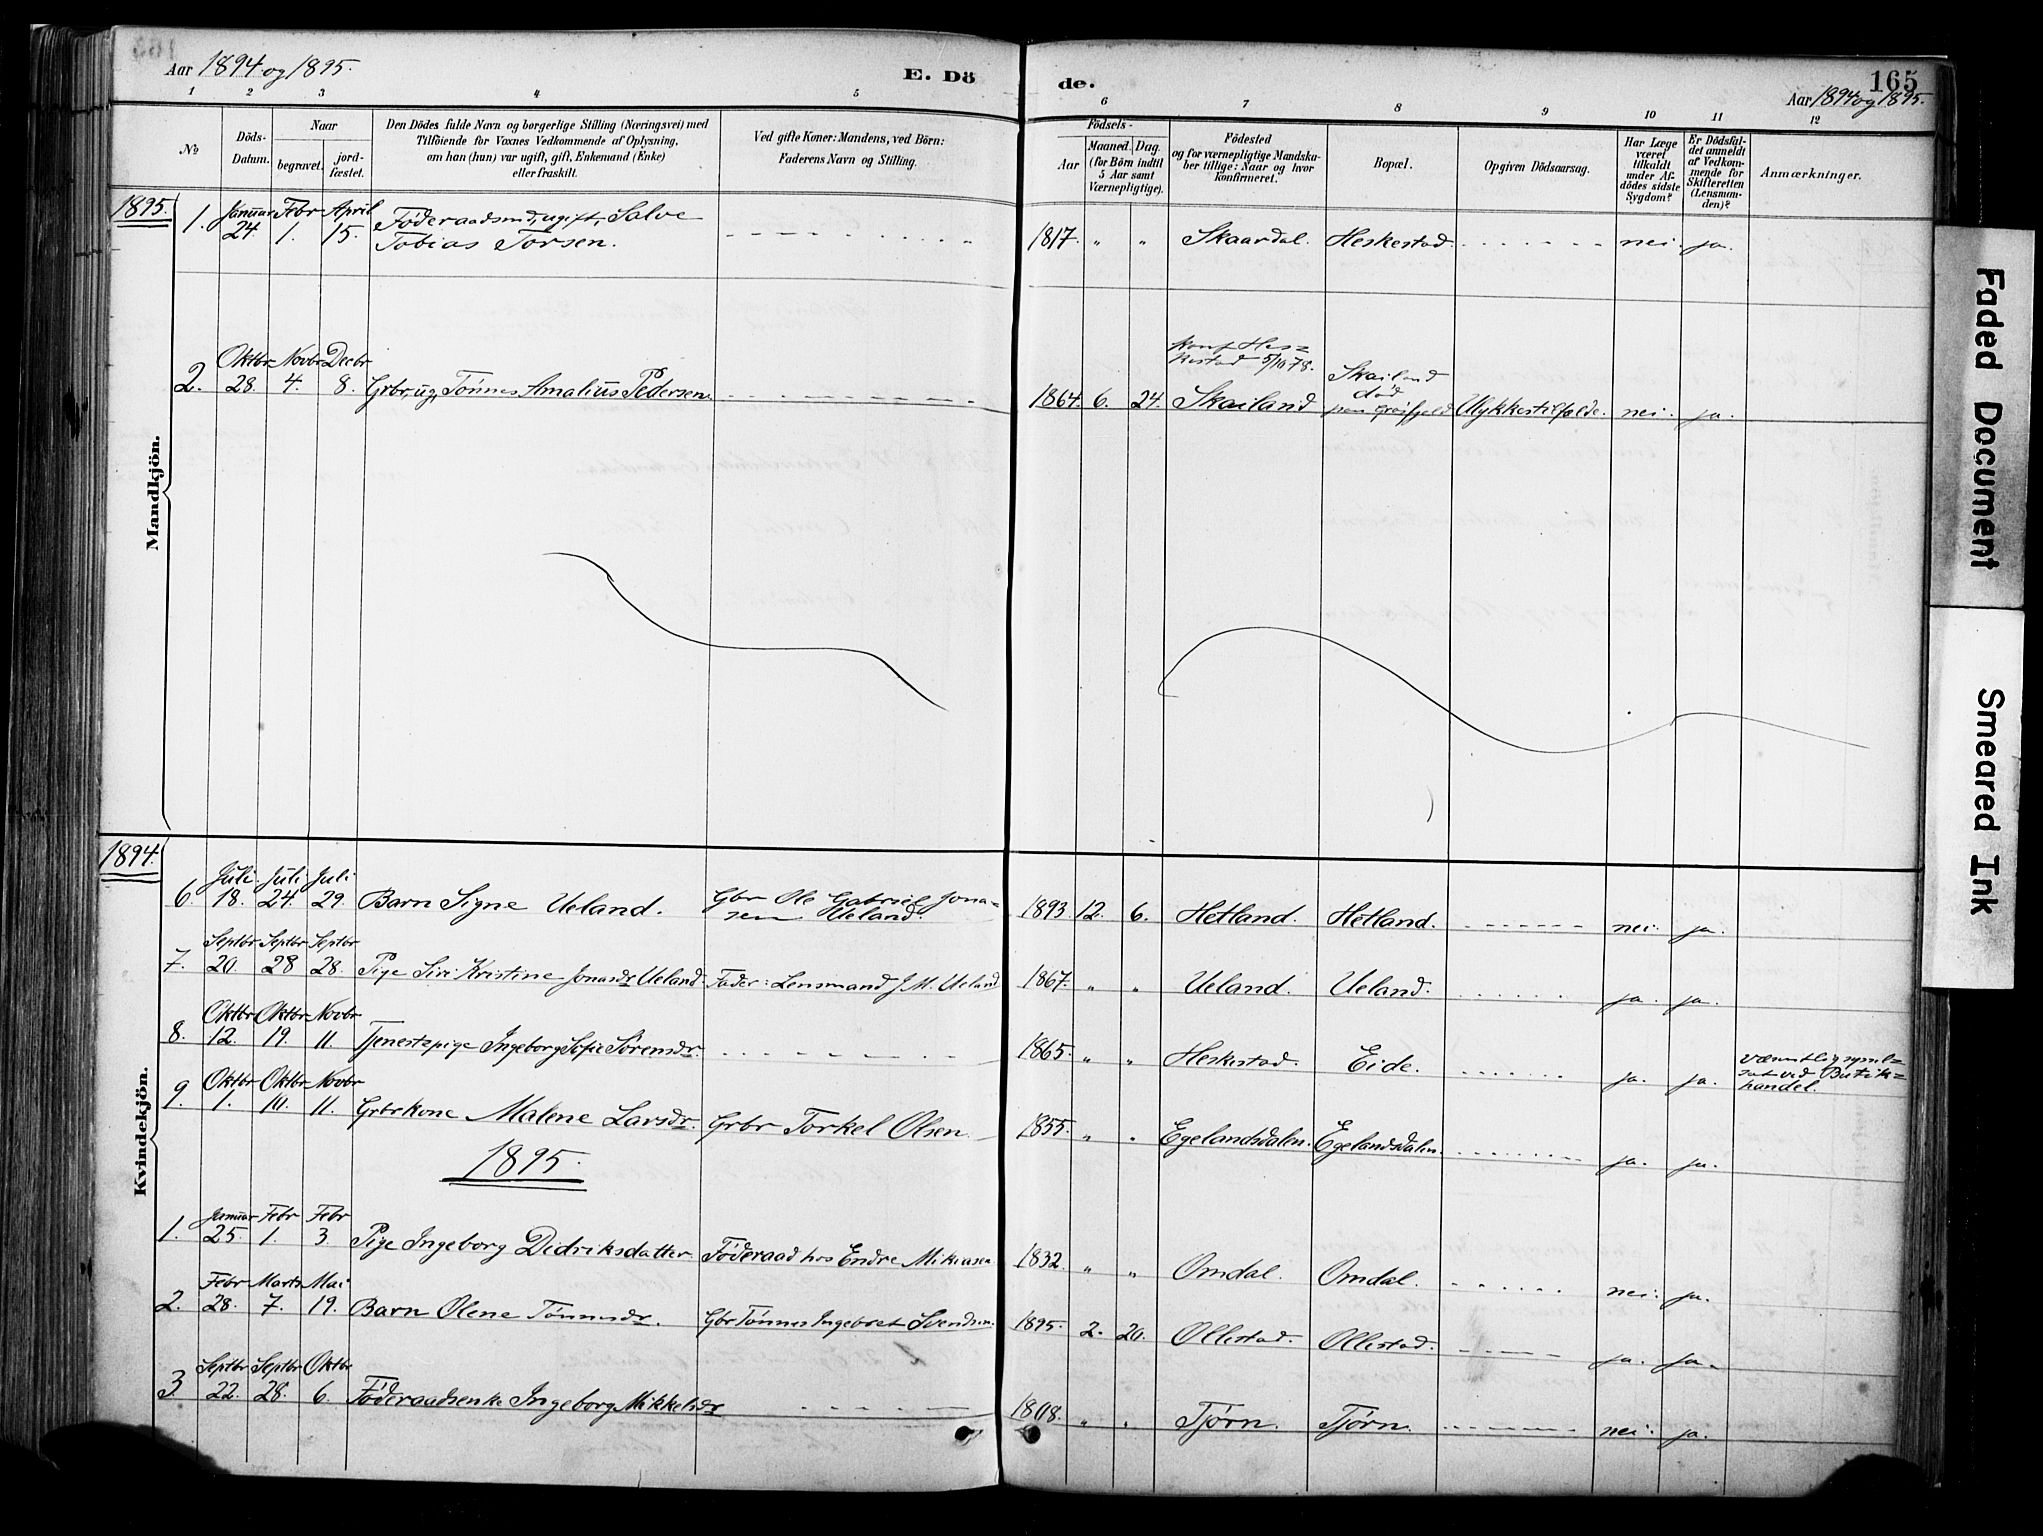 Aar 1894 og 1895.
E. Dö
de.
165
Aar 1894 og 1895.
1 2 3 4 5 6 7 8 9 10 11 12
No
Döds-
Datum.
Naar
begravet.
jord-
fæstet.
Den Dödes fulde Navn og borgerlige Stilling (Næringsvei) med
Tilföiende for Voxnes Vedkommende af Oplysning,
om han (hun) var ugift, gift, Enkemand (Enke)
eller fraskilt.
Ved gifte Koner: Mandens, ved Börn:
Faderens Navn og Stilling.
Födsels-
Aar
Maaned. Dag.
(for Börn indtil
5 Aar samt
Værnepligtige).
Födested
og for værnepligtige Mandska-
ber tillige: Naar og hvor
konfirmeret.
Bopæl.
Opgiven Dödsaarsag.
Har Læge
været
tilkaldt
under Af-
dödes sidste
Sygdom?
Er Dödsfal-
det anmeldt
af Vedkom-
mende for
Skifteretten
(Lensman-
den)?
Anmærkninger.
Mandkjön.
1895.
1. Januar 24. Febr 1. April 15. Föderaadsmd, ugift, Salve
Tobias Torsen. 1817. " " Skaardal. Heskestad. nei. ja.
konf Hes=
kestad 5/10 78.
2. Oktbr 28. Novbr 4. Decbr 8. Grbr, ug, Tönnes Amalius Pedersen. 1864. 6. 24. Skailand Skailand
död
paa Ulykkestilfælde. nei. ja.
Kvindekjön.
1894.
6. Juli 18. Juli 24. Juli 29. Barn Signe Ueland. Gbr Ole Gabriel Jona=
sen Ueland 1893 12. 6. Hetland. Hetland. nei. ja.
7. Septbr 20. Septbr 28 Septbr 28. Pige Siri Kristine Jonasdr Ueland. Fader: Lensmand J. M. Ueland 1867. " " Ueland. Ueland. ja. ja.
8. Oktbr 12. Oktbr 19. Novbr 11. Tjenestepige Ingeborg Sofie Sörensdr. 1865. " " Heskestad. Eide. ja. ja. væsentlig
ved Butik=
handel.
9. Oktbr 1. Oktbr 10. Novbr 11. Grbrkone Malene Larsdr. Grbr Torkel Olsen. 1855. " " Egelandsdalen. Egelandsdalen. ja. ja.
1895.
1. Januar 25. Febr 1. Febr 3. Pige Ingeborg Didriksdatter. Föderaad hos Endre Mikiasen. 1832. " " Omdal. Omdal. nei. ja.
2. Febr 28. Marts 7. Mai 19. Barn Olene Tönnesdr. Gbr Tönnes Ingebret Svendsen. 1895. 2. 20. Ollestad. Ollestad. ja. ja.
3. Septbr 22. Septbr 28. Oktbr 6. Föderaadsenke Ingeborg Mikkelsdr 1808. " " Tjörn. Tjörn. nei. ja.
Faded Document
Smeared Ink